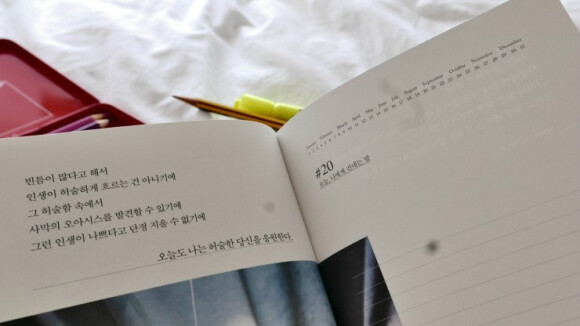 빈틈이 많다고 해서
인생이 허술하게 흐르는 건 아니기에
그 허술함 속에서
사막의 오아시스를 발견할 수 있기에
그런 인생이 나쁘다고 단정 지을 수 없기에
오늘도 나는 허술한 당신을 응원한다.
January February March April May June July August September October November December
1 2 3 4 5 6 7 8 9 10 11 12 13 14 15 16 17 18 19 20 21 22 23 24 25 26 27 28 29 30 31
#20
오늘 나에게 건네는 말